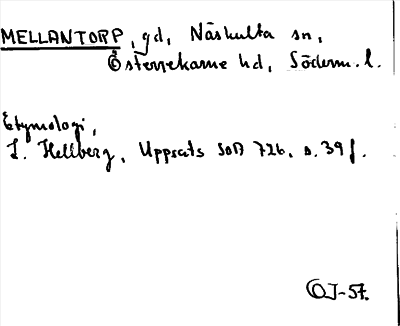 MELLANTORP, gd, Näshulta sn,
Österrekarne hd, Söderm. l.
Etymologi,
L. Hellberg, Uppsats SOA 726, s. 39 f.
OJ-57.